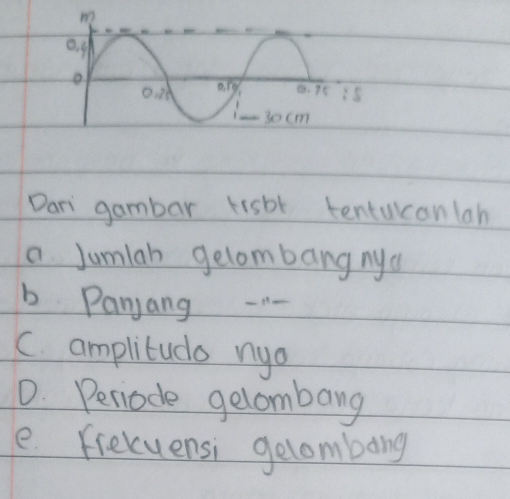 m
0,4
0
0.25 0,50 0.75 :s
30 cm
Dari gambar trsbt tentukanlah
a. Jumlah gelombangnya
b. Panjang -"-
C. amplitudo nya
D. Periode gelombang
e. frekuensi gelombang